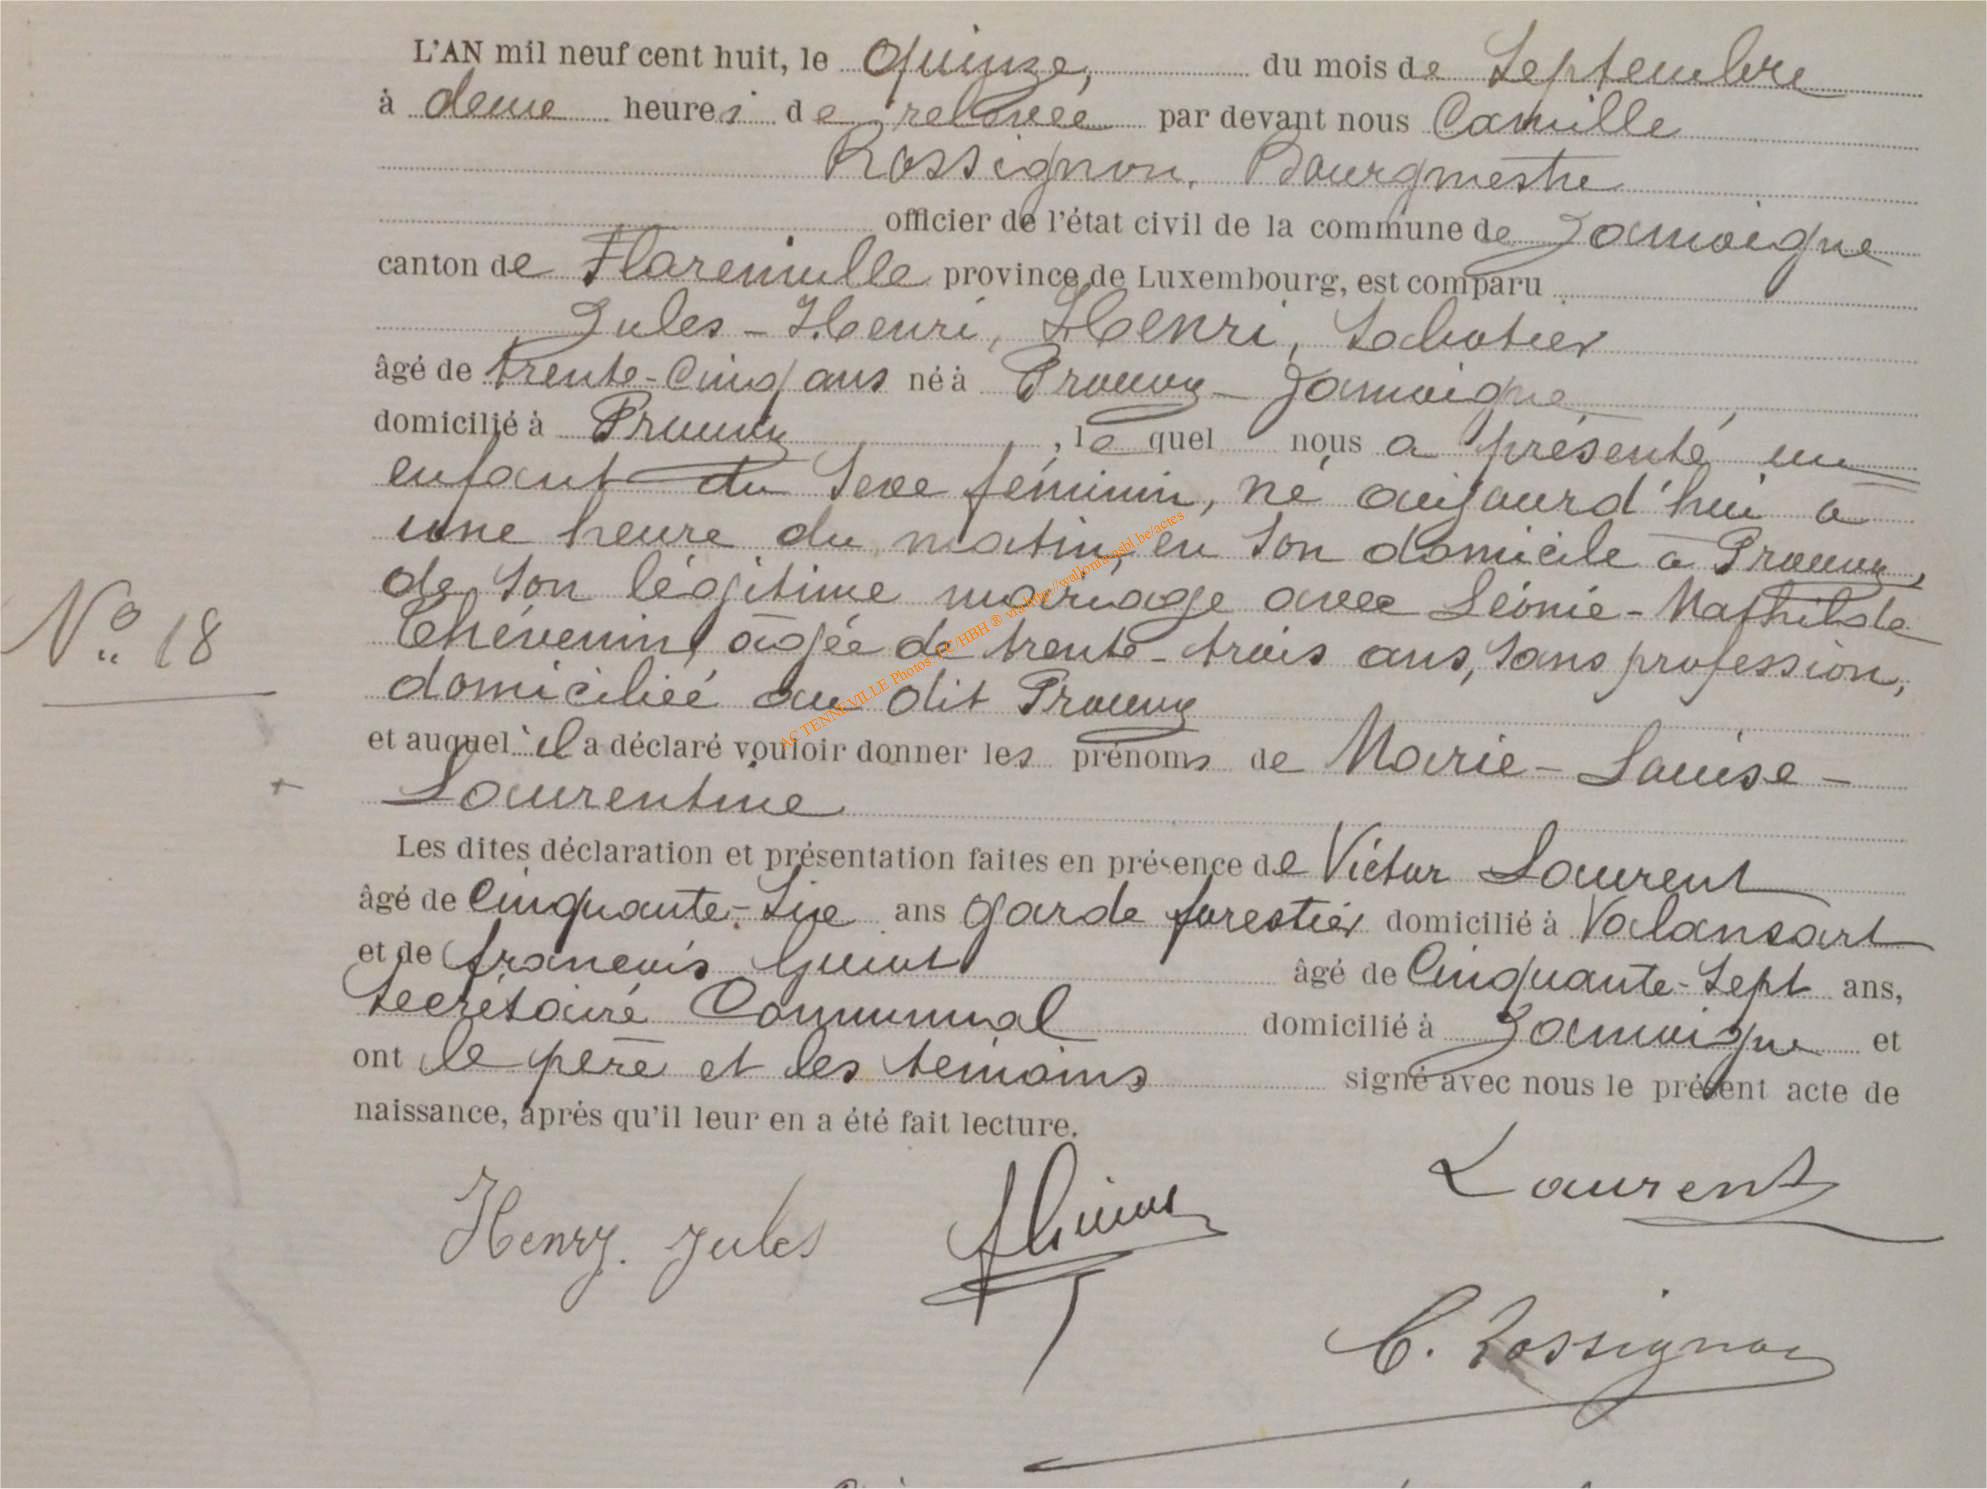 L'AN mil neuf cent huit, le quinze, du mois de Septembre
à deux heures de relevée par devant nous Camille
Rossignon, Bourgmestre
officier de l'état civil de la commune de Jamoigne
canton de Florenville province de Luxembourg, est comparu
Jules-Henri, Henri, Sabotier
âgé de trente-cinq ans né à Prouvy-Jamoigne,
domicilié à Prouvy, lequel nous a présenté un
enfant du sexe féminin, né aujourd'hui à
une heure du matin, en son domicile à Prouvy,
de son légitime mariage avec Léonie-Mathilde
N° 18
Thévenin, âgée de trente-trois ans, sans profession,
domiciliée au dit Prouvy
et auquel il a déclaré vouloir donner les prénoms de Marie-Louise-
Laurentine
Les dites déclaration et présentation faites en présence de Victor Laurent
âgé de Cinquante-six ans garde forestier domicilié à Valansart
et de françois âgé de Cinquante-sept ans,
secrétaire Communal domicilié à Jamoigne et
ont le père et les témoins signé avec nous le présent acte de
naissance, après qu'il leur en a été fait lecture.
Laurent
Henry. Jules
C. Rossignon
AC TENNEVILLE Photos